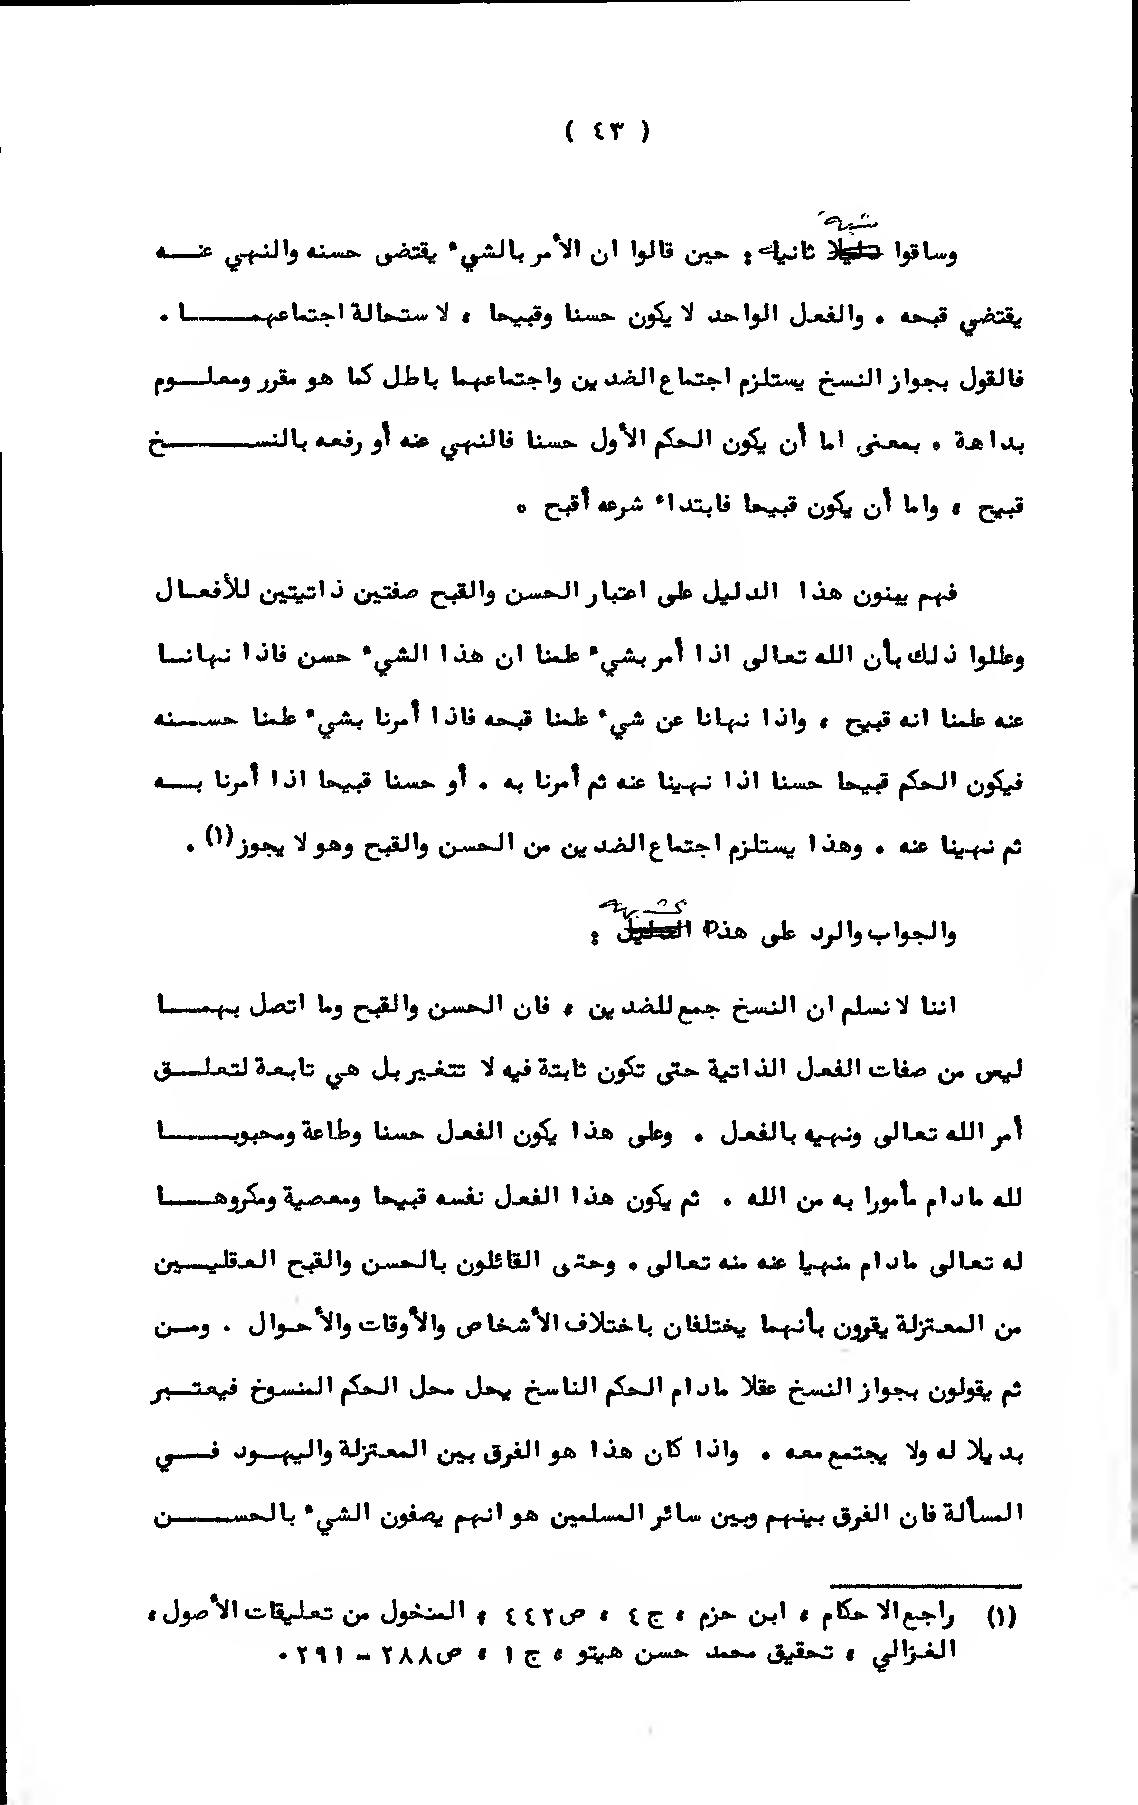 ( ٤٣ )
وساقوا شبهة ثانية : حين قالوا ان الأمر بالشيء يقتضى حسنه والنهي عنه
يقتضي قبحه . والفعل الواحد لا يكون حسنا وقبيحا ، لاستحالة اجتماعهما .
فالقول بجواز النسخ يستلزم اجتماع الضدين واجتماعهما باطل كما هو مقرر ومعلوم
بداهة . بمعنى اما أن يكون الحكم الأول حسنا فالنهي عنه أو رفعه بالنسخ
قبيح ، واما أن يكون قبيحا فابتداء شرعه أقبح .
فهم يبنون هذا الدليل على اعتبار الحسن والقبح صفتين ذاتيتين للأفعال
وعللوا ذلك بأن الله تعالى اذا أمر بشيء علمنا ان هذا الشيء حسن فاذا نهانا
عنه علمنا انه قبيح ، واذا نهانا عن شيء علمنا قبحه فاذا أمرنا بشيء علمنا حسنه
فيكون الحكم قبيحا حسنا اذا نهينا عنه ثم أمرنا به . أو حسنا قبيحا اذا أمرنا به
ثم نهينا عنه . وهذا يستلزم اجتماع الضدين من الحسن والقبح وهو لا يجوز(١) .
والجواب والرد على هذه الشبهة :
اننا لا نسلم ان النسخ جمع للضدين ، فان الحسن والقبح وما اتصل بهما
ليس من صفات الفعل الذاتية حتى تكون ثابتة فيه لا تتغير بل هي تابعة لتعلق
أمر الله تعالى ونهيه بالفعل . وعلى هذا يكون الفعل حسنا وطاعة ومحبوبا
لله مادام مأمورا به من الله . ثم يكون هذا الفعل نفسه قبيحا ومعصية ومكروها
له تعالى مادام منهيا عنه منه تعالى . وحتى القائلون بالحسن والقبح العقليين
من المعتزلة يقرون بأنهما يختلفان باختلاف الأشخاص والأوقات والأحوال . ومن
ثم يقولون بجواز النسخ عقلا مادام الحكم الناسخ يحل محل الحكم المنسوخ فيعتبر
بديلا له ولا يجتمع معه . واذا كان هذا هو الفرق بين المعتزلة واليهود في
المسألة فان الفرق بينهم وبين سائر المسلمين هو انهم يصفون الشيء بالحسن
(١) راجع الاحكام ، ابن حزم ، ج٤ ، ص٤٤٢ ، المنخول من تعليقات الأصول ،
الغزالي ، تحقيق محمد حسن هيتو ، ج ١ ، ص٢٨٨ - ٢٩١ .